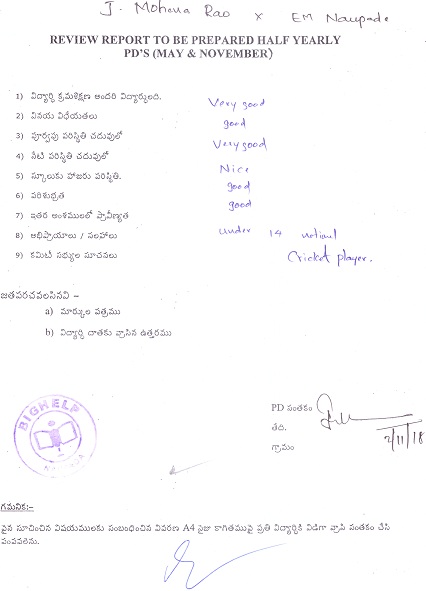 J. Mohana Rao x EM Naupada
REVIEW REPORT TO BE PREPARED HALF YEARLY
PD'S (MAY & NOVEMBER)
1) విద్యార్థి క్రమశిక్షణ అందరి విద్యార్థులది. Very good
2) వినయ విధేయతలు good
3) పూర్వపు పరిస్థితి చదువులో Very good
4) నేటి పరిస్థితి చదువులో Nice
5) స్కూలుకు హాజరు పరిస్థితి. good
6) పరిశుభ్రత good
7) ఇతర అంశములలో ప్రావీణ్యత under 14 national
8) అభిప్రాయాలు / సలహాలు Cricket player.
9) కమిటి సభ్యుల సూచనలు
జతపరచవలసినవి –
a) మార్కుల పత్రము
b) విద్యార్థి దాతకు వ్రాసిన ఉత్తరము
PD సంతకం
తేది. 2/11/18
గ్రామం
BIGHELP
NAUPADA
గమనిక:–
పైన సూచించిన విషయములకు సంబంధించిన వివరణ A4 సైజు కాగితముపై ప్రతి విద్యార్థికి విడిగా వ్రాసి సంతకం చేసి
పంపవలెను.